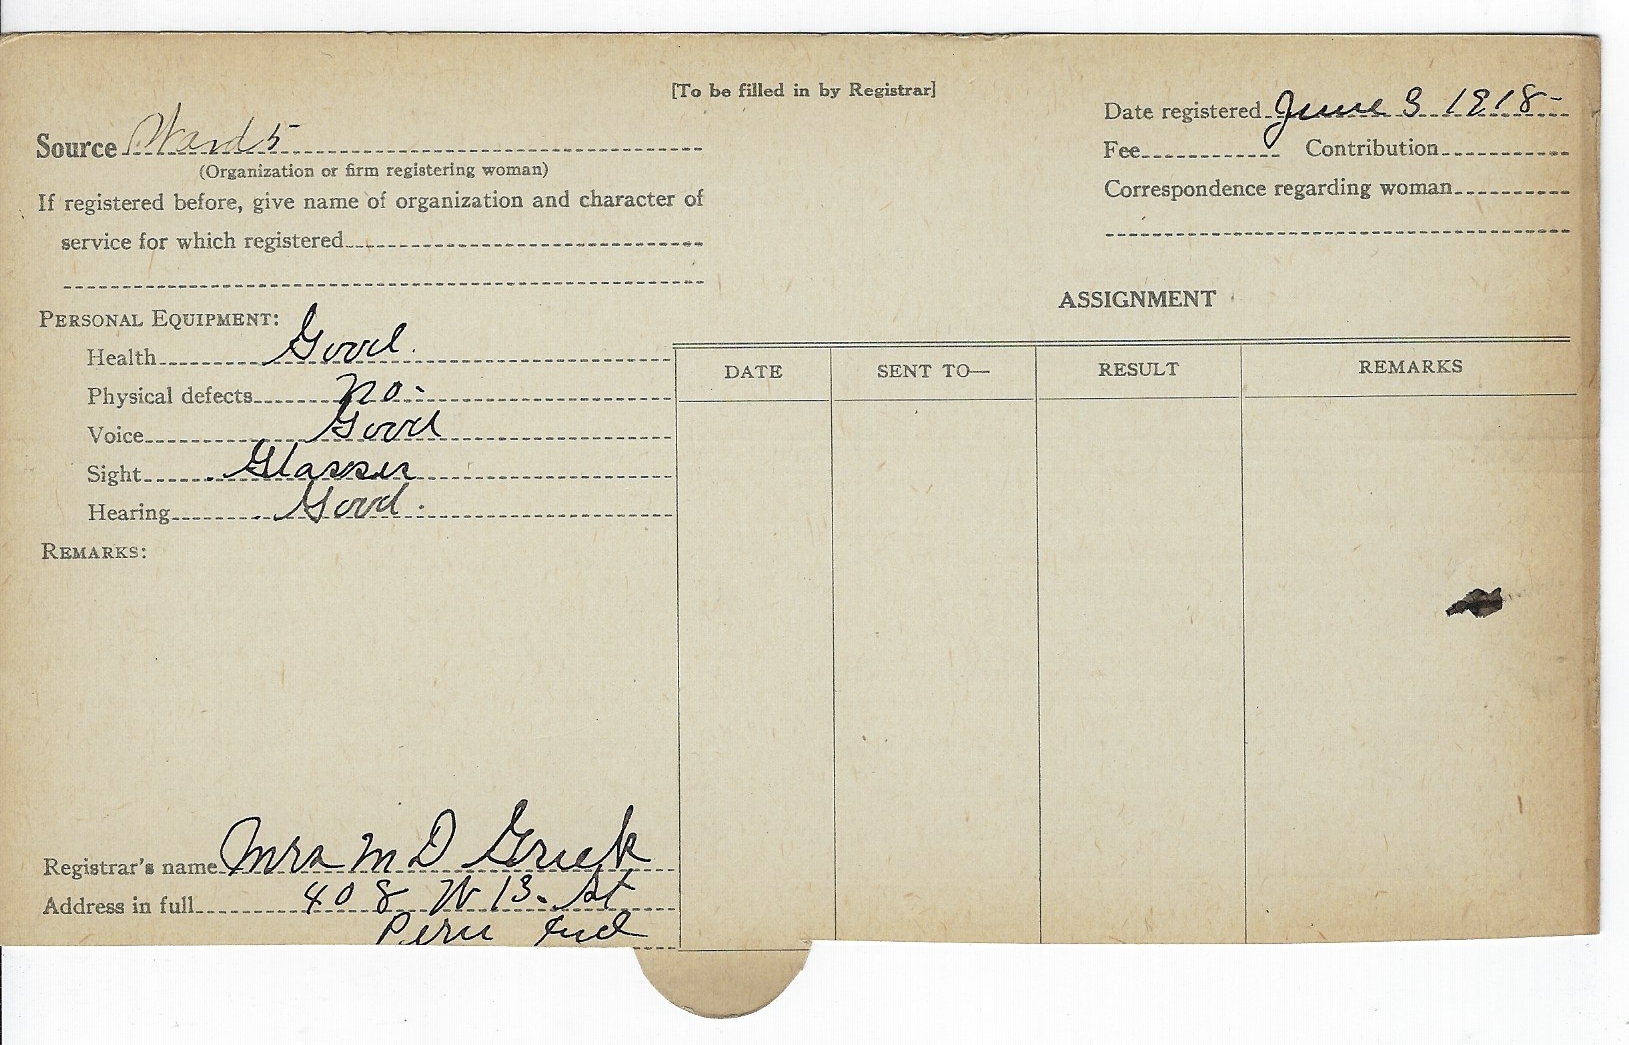 [To be filled in by Registrar]
Source Ward 5
(Organization or firm registering woman)
If registered before, give name of organization and character of
service for which registered
Date registered June 3 1918-
Fee Contribution
Correspondence regarding woman
PERSONAL EQUIPMENT:
Health Good.
Physical defects no-
Voice Good
Sight Glasses
Hearing Good.
REMARKS:
ASSIGNMENT
DATE SENT TO— RESULT REMARKS
Registrar's name Mrs M D
Address in full 408 W 13- St
Peru Ind